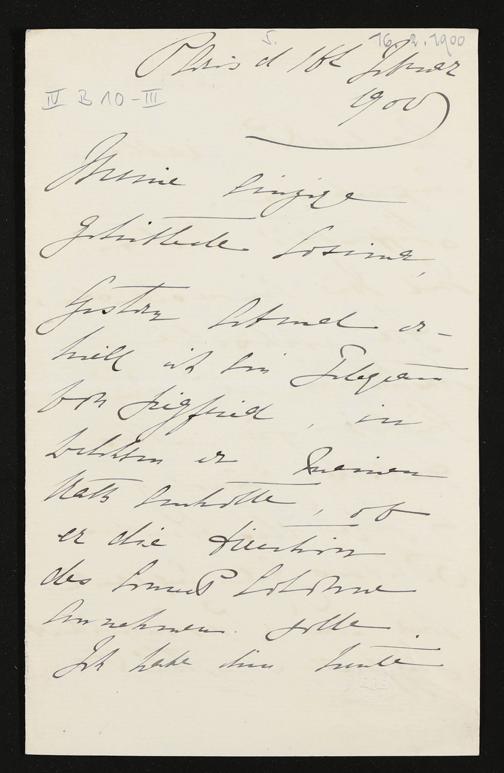 5. 16.2.1900
Paris d 16t Februar
IV B 10 - III
1900
Meine einzige
geliebteste Cosima,
Gestern Abend er-
hielt ich ein Telegram
von Siegfried, in
welchem er meinen
Rath einholte, ob
er die Direction
des Concert Colonne
annehmen solle.
Ich habe ihm heute